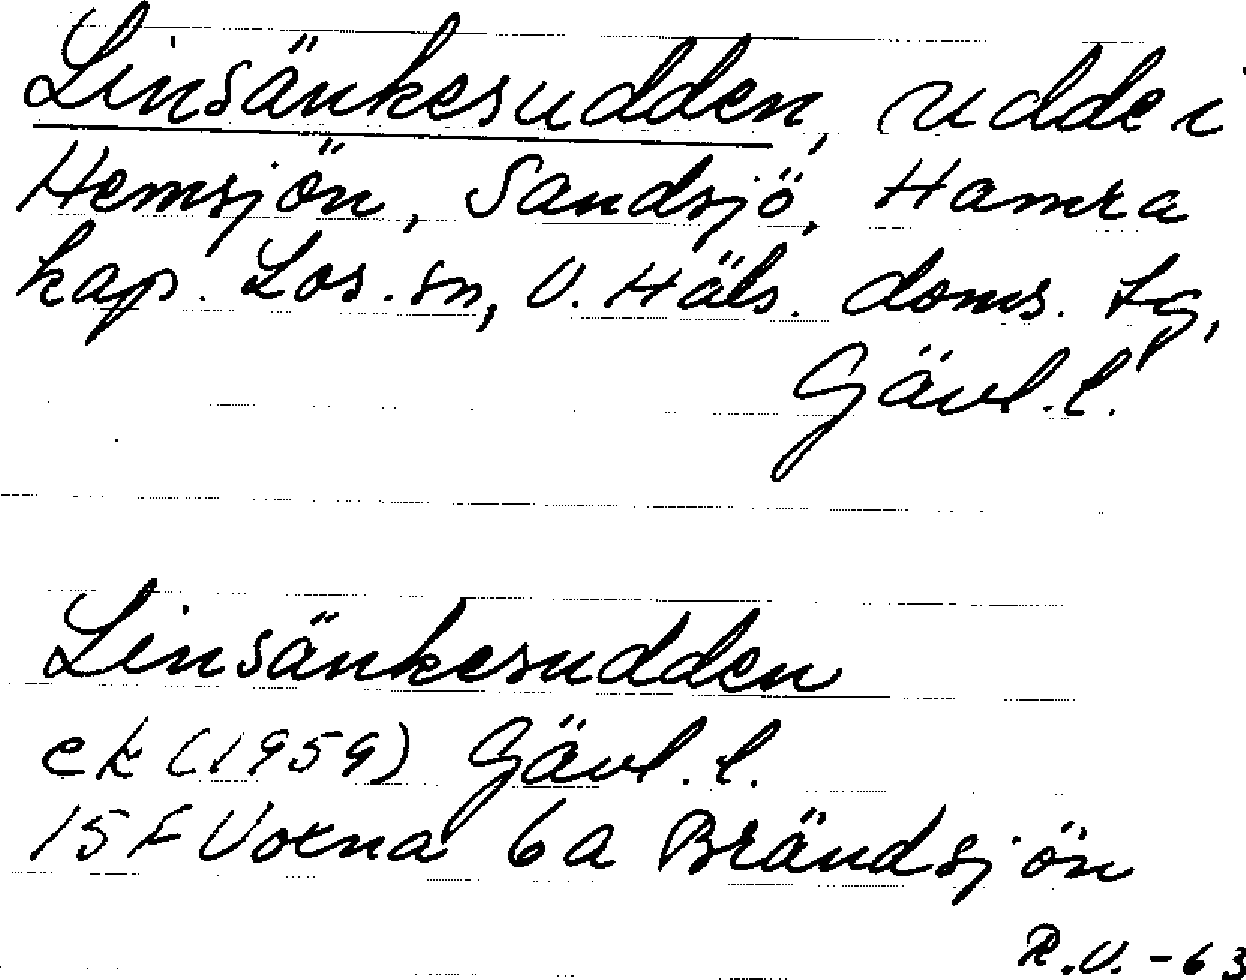 Linsänkesudden, udde i
Hemsjön, Sandsjö, Hamra
kap. Los. sn, V. Häls. doms. tg,
Gävl. l.
Linsänkesudden
ek (1959) Gävl. l.
15 F Voxna 6a Brändsjön
R.V. -63